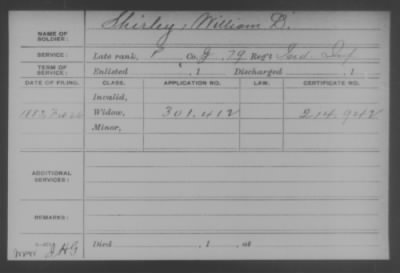 NAME OF SOLDIER: Shirley, William D.
SERVICE: Late rank, P Co. G, 79 Reg't Ind. Inf
TERM OF SERVICE: Enlisted , 1 Discharged , 1
DATE OF FILING. CLASS. APPLICATION NO. LAW. CERTIFICATE NO.
Invalid,
1883 Widow, 301.412 214.942
Minor,
ADDITIONAL SERVICES:
REMARKS:
Died , 1 , at